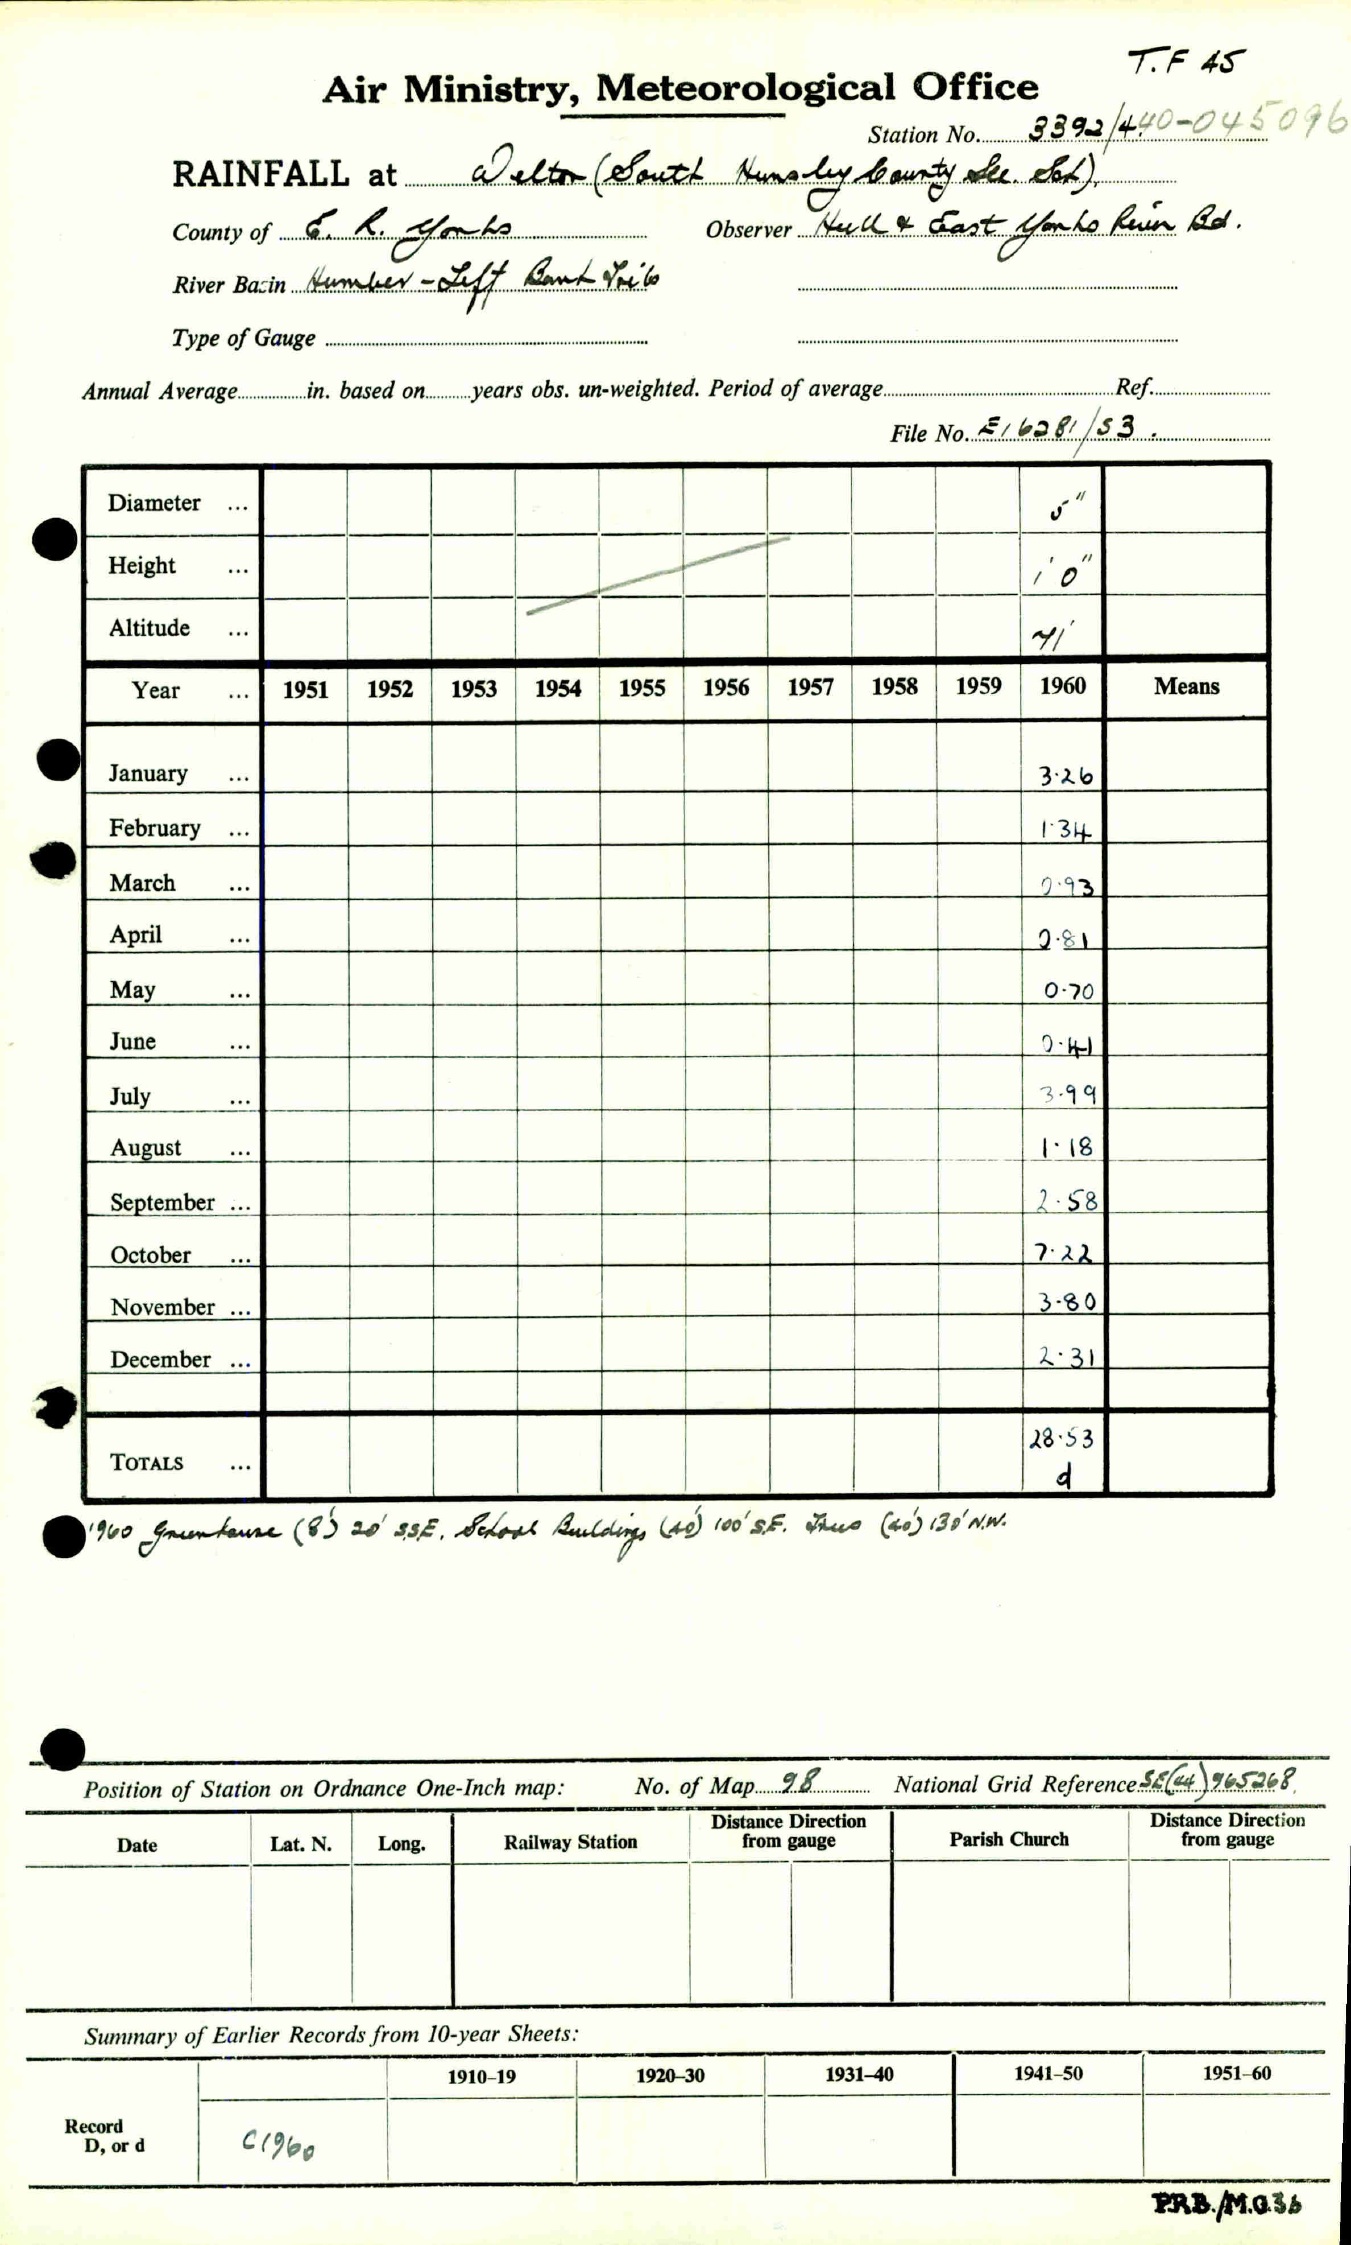 T.F 45
Air Ministry, Meteorological Office
Station No. 3392/4. 40-045096
RAINFALL at Welton (South Hunsley County Sec. Sch).
County of E. R. Yorks Observer Hull & East Yorks River Bd.
River Basin Humber - Left Bank Tribs
Type of Gauge
Annual Average in. based on years obs. un-weighted. Period of average Ref.
File No. E16281/53.
Diameter ... 5"
Height ... 1' 0"
Altitude ... 71'
Year ... 1951 1952 1953 1954 1955 1956 1957 1958 1959 1960 Means
January ... 3.26
February ... 1.34
March ... 0.93
April ... 0.81
May ... 0.70
June ... 0.41
July ... 3.99
August ... 1.18
September ... 2.58
October ... 7.22
November ... 3.80
December ... 2.31
TOTALS ... 28.53
d
1960 Greenhouse (8') 20' S.S.E. School Buildings (40') 100' S.E. Trees (40') 130' N.W.
Position of Station on Ordnance One-Inch map: No. of Map 98 National Grid Reference SE(44)965268.
Date Lat. N. Long. Railway Station Distance Direction from gauge Parish Church Distance Direction from gauge
Summary of Earlier Records from 10-year Sheets:
1910–19 1920–30 1931–40 1941–50 1951–60
Record
D, or d C1960
P.R.B./M.O.3b